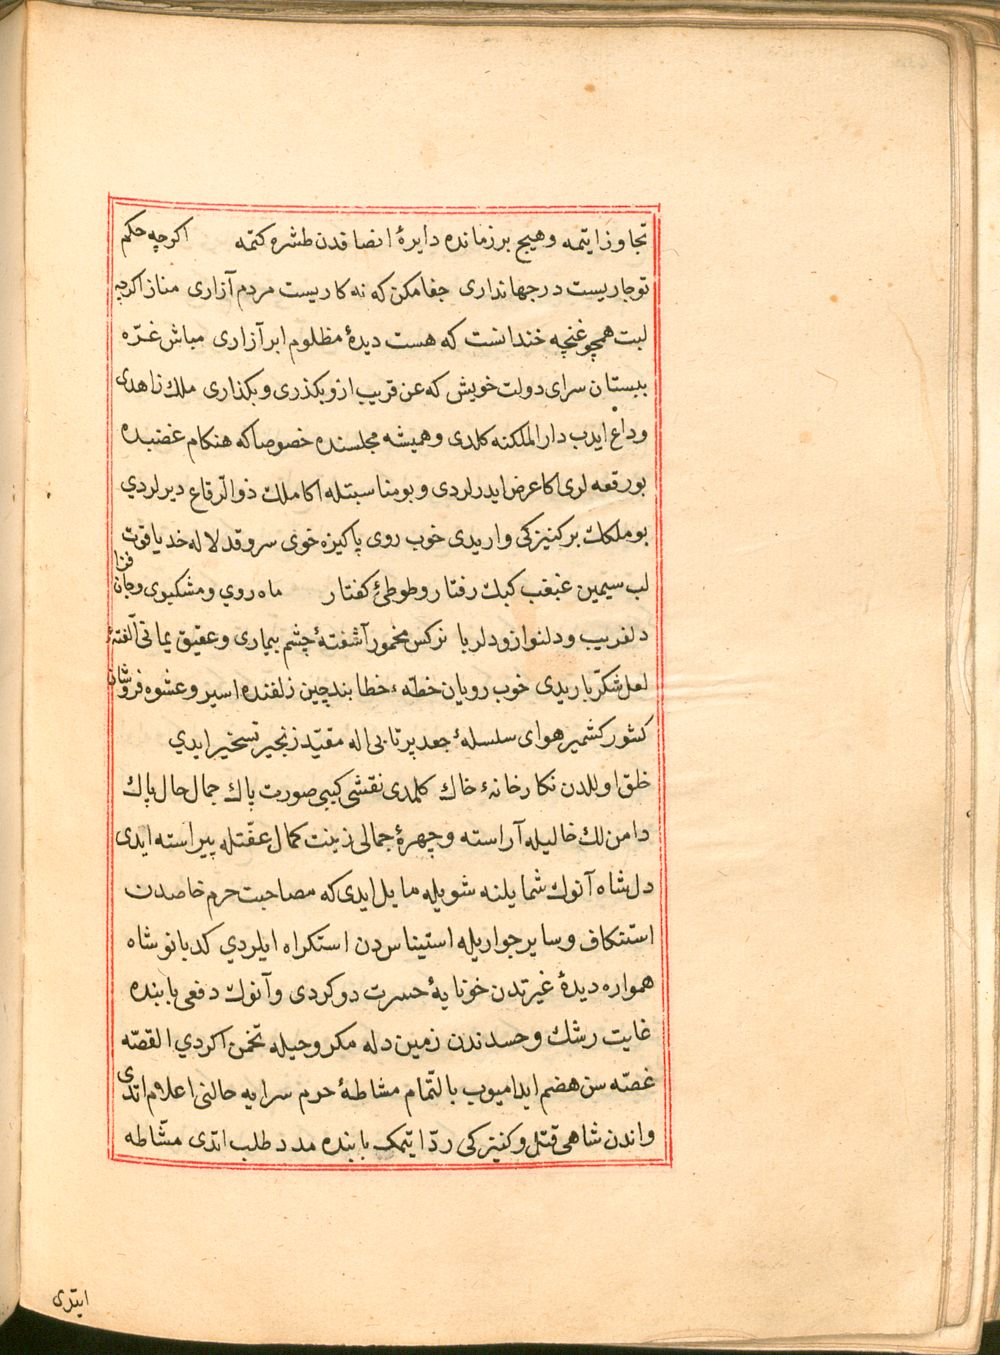 تجاوز ایتمه و هیچ بر زمانده دایرۀ انصافدن طشره کتمه اکرچه حکم
تو جاریست در جهانداری جفا مکن که نه کاریست مردم آزاری مناز اکرچه
لبت همچو غنچه خندانست که هست دیدۀ مظلوم ابر آزاری مباش غرّه
ببستان سرای دولت خویش که عن قریب ازو بکذری و بکذاری ملك زاهدی
وداع ایدب دار الملکنه کلدی و همیشه مجلسنده خصوصا که هنکام غضبده
بو رقعه لری اکا عرض ایدرلردی و بو مناسبتله اکا ملك ذو الرّقاع دیرلردي
بو ملکك بر کنیزکی واریدی خوب روی پاکیزه خوی سرو قد لاله خد یاقوت
لب سیمین غبغب کبك رفتار و طوطیٔ کفتار ماه روي و مشکبوی و جان فزا
دلفریب و دلنواز و دلربا نرکس مخمور آشفتۀ چشم بیماری و عقیق یمانی آلفتۀ
لعل شکّر باریدی خوب رویان خطّهٔ خطا بند چین زلفنده اسیر و عشوه فروشان
کشور کشمیر هوای سلسلۀ جعد پرتابی اله مقیّد زنجیر تسخیر ایدي
خلق اوللدن نکارخانۀ خاك کلمدی نقشی کیبی صورت پاك جمال حال پاك
دامن لك خالیله آراسته و چهرۀ جمالی زینت کمال عفّتله پیراسته ایدی
دل شاه آنوك شمایلنه شویله مایل ایدی که مصاحبت حرم خاصدن
استنکاف و سایر جواریله استیناسدن استکراه ایلردي کدبانو شاه
همواره دیدۀ غیرتدن خونابۀ حسرت دوکردی و آنوك دفعی بابنده
غایت رشك و حسدندن زمین دله مکر و حیله تخمن اکردي القصّه
غصّه سن هضم ایدامیوب بالتّمام مشاطۀ حرم سرایه حالنی اعلام اتدی
و اندن شاهی قتل و کنیزکی ردّ ایتمك بابنده مدد طلب اتدی مشّاطه
ایتدی